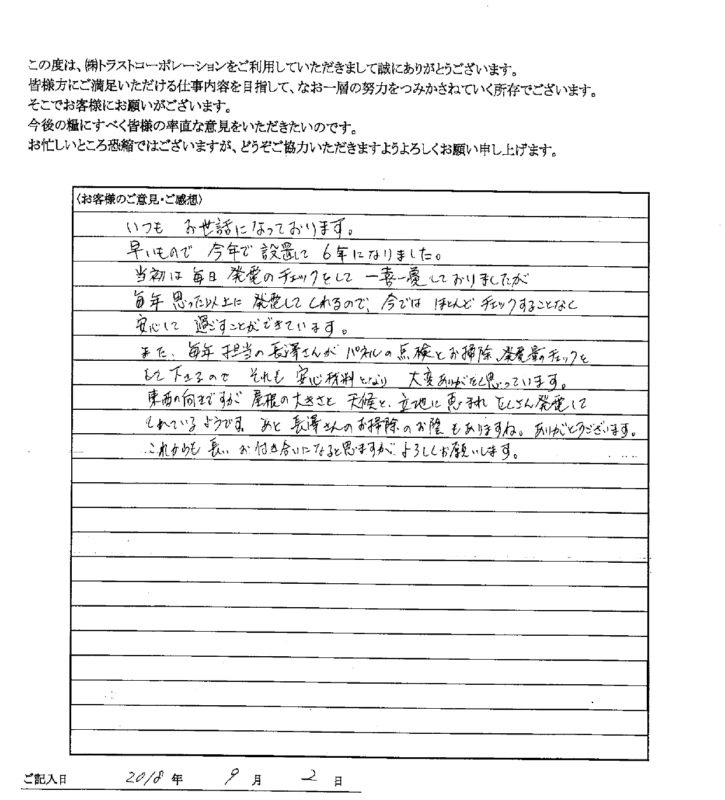 この度は、㈱トラストコーポレーションをご利用していただきまして誠にありがとうございます。
皆様方にご満足いただける仕事内容を目指して、なお一層の努力をつみかさねていく所存でございます。
そこでお客様にお願いがございます。
今後の糧にすべく皆様の率直な意見をいただきたいのです。
お忙しいところ恐縮ではございますが、どうぞご協力いただきますようよろしくお願い申し上げます。
〈お客様のご意見・ご感想〉
いつも お世話になっております。
早いもので 今年で 設置して 6年になりました。
当初は 毎日 発電のチェックをして 一喜一憂しておりましたが
毎年 思った以上に 発電してくれるので、今では ほとんど チェックすることなく
安心して 過ごすことができています。
また、毎年 担当の長澤さんが パネルの点検とお掃除、発電量のチェックを
して下さるので それも 安心材料となり 大変ありがたく思っています。
東西の向きですが 屋根の大きさと 天候と、立地に恵まれ たくさん発電して
くれているようです。あと 長澤さんのお掃除のお陰もありますね。ありがとうございます。
これからも 長い お付き合いになると思いますが よろしくお願いします。
ご記入日 2018 年 9 月 2 日